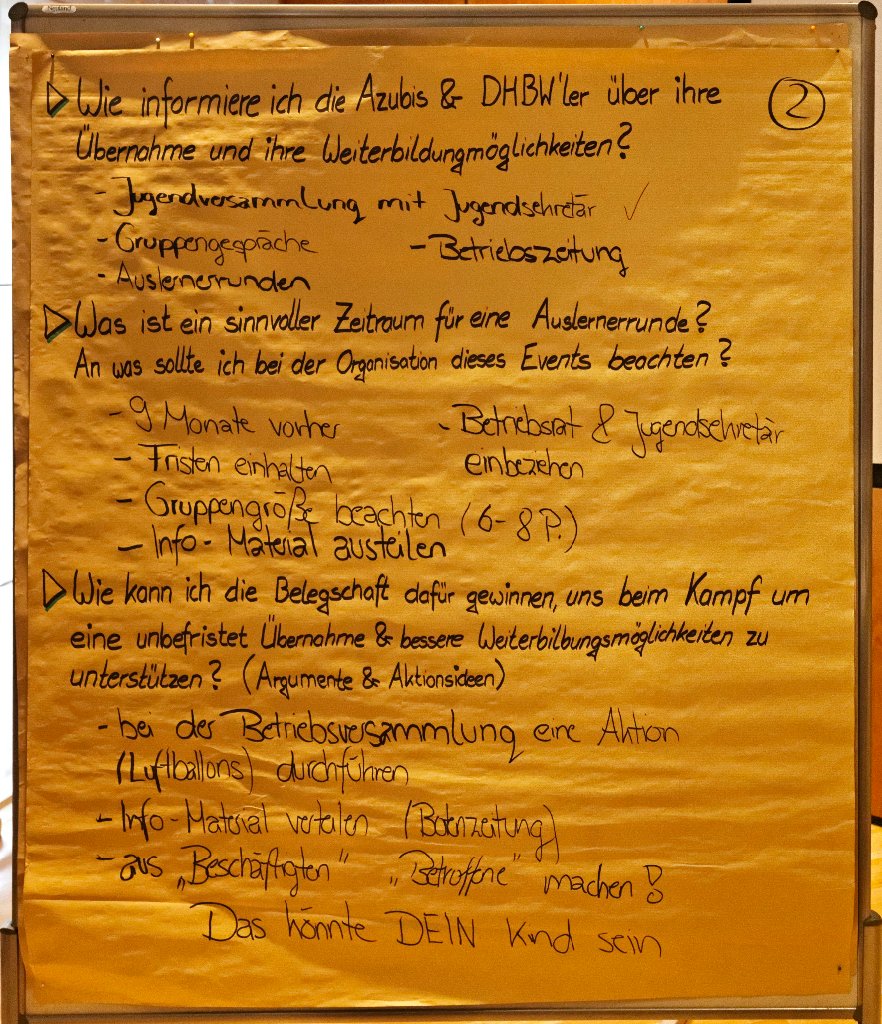 Neuland
▷ Wie informiere ich die Azubis & DHBW'ler über ihre
②
Übernahme und ihre Weiterbildungmöglichkeiten?
- Jugendversammlung mit Jugendsekretär ✓
- Gruppengespräche - Betriebszeitung
- Auslernerrunden
▷ Was ist ein sinnvoller Zeitraum für eine Auslernerrunde?
An was sollte ich bei der Organisation dieses Events beachten?
- 9 Monate vorher - Betriebsrat & Jugendsekretär
- Fristen einhalten einbeziehen
- Gruppengröße beachten (6-8 P.)
- Info-Material austeilen
▷ Wie kann ich die Belegschaft dafür gewinnen, uns beim Kampf um
eine unbefristet Übernahme & bessere Weiterbilbungsmöglichkeiten zu
unterstützen? (Argumente & Aktionsideen)
- bei der Betriebsversammlung eine Aktion
(Luftballons) durchführen
- Info-Material verteilen (Botenzeitung)
- aus „Beschäftigten" „Betroffene" machen!
Das könnte DEIN Kind sein